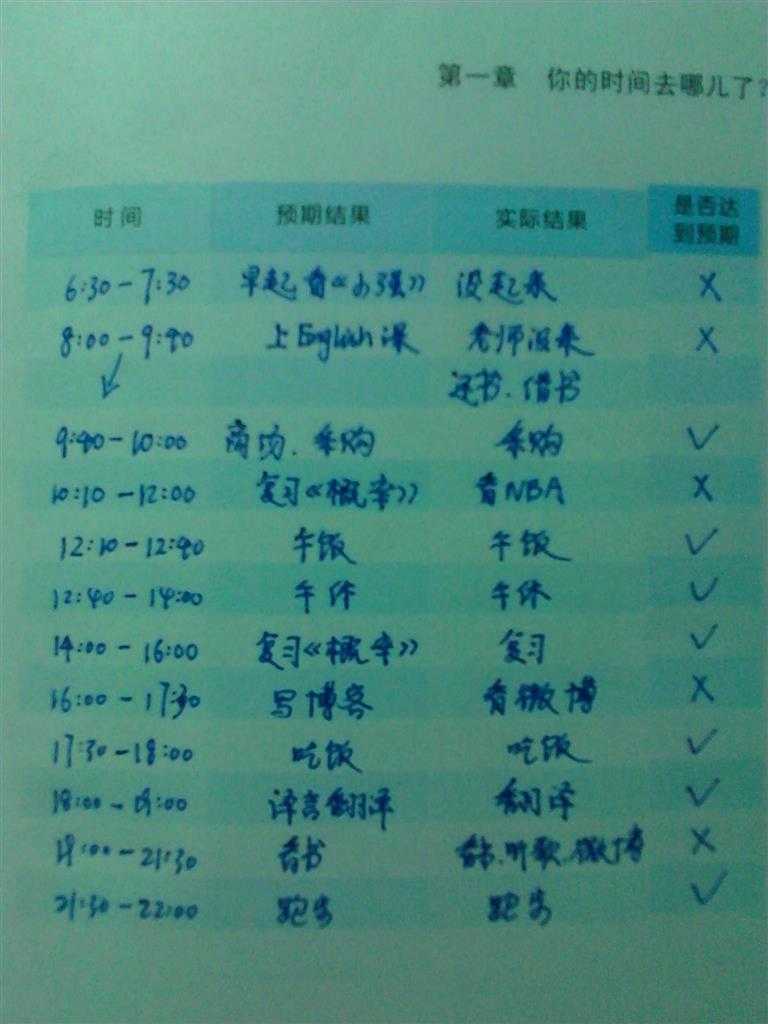 第一章 你的时间去哪儿了?
时间 预期结果 实际结果 是否达到预期
6:30-7:30 早起看《小强》 没起来 X
8:00-9:40 上English课 老师没来 X
还书、借书
9:40-10:00 商场、采购 采购 ✓
10:10-12:00 复习《概率》 看NBA X
12:10-12:40 午饭 午饭 ✓
12:40-14:00 午休 午休 ✓
14:00-16:00 复习《概率》 复习 ✓
16:00-17:30 写博客 看微博 X
17:30-18:00 吃饭 吃饭 ✓
18:00-19:00 译言翻译 翻译 ✓
19:00-21:30 看书 看书、听歌、微博 X
21:30-22:00 跑步 跑步 ✓